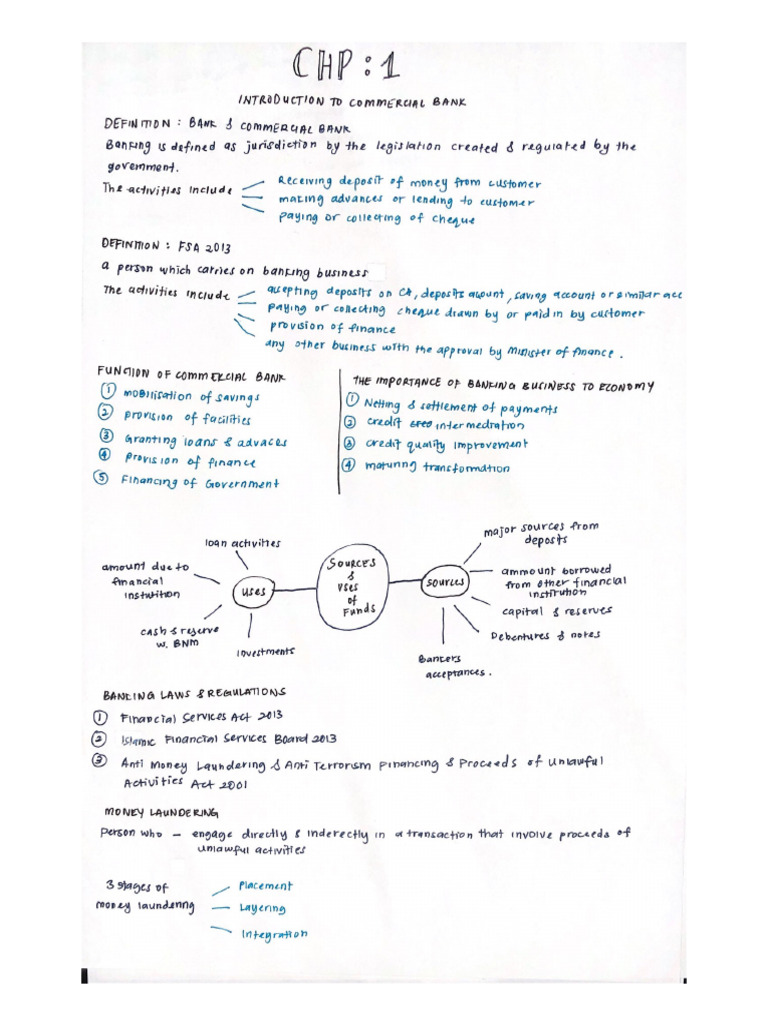 CHP : 1
INTRODUCTION TO COMMERCIAL BANK
DEFINITION : BANK & COMMERCIAL BANK
Banking is defined as jurisdiction by the legislation created & regulated by the
government.
The activities include
Receiving deposit of money from customer
making advances or lending to customer
paying or collecting of cheque
DEFINITION : FSA 2013
a person which carries on banking business
The activities include
accepting deposits on CA, deposits account, saving account or similar acc
paying or collecting cheque drawn by or paid in by customer
provision of finance
any other business with the approval by Minister of finance.
FUNCTION OF COMMERCIAL BANK
① mobilisation of savings
② provision of facilities
③ Granting loans & advaces
④ Provision of finance
⑤ Financing of Government
THE IMPORTANCE OF BANKING BUSINESS TO ECONOMY
① Netting & settlement of payments
② credit intermedration
③ credit quality improvement
④ maturing transformation
SOURCES
&
USES
OF
FUNDS
USES
loan activities
amount due to
financial
institution
cash & reserve
w. BNM
Investments
SOURCES
major sources from
deposits
ammount borrowed
from other financial
institution
capital & reserves
Debentures & notes
Bankers
acceptances.
BANKING LAWS & REGULATIONS
① Financial Services Act 2013
② Islamic Financial Services Board 2013
③ Anti Money Laundering & Anti Terrorism Financing & Proceeds of Unlawful
Activities Act 2001
MONEY LAUNDERING
Person who – engage directly & inderectly in a transaction that involve proceeds of
unlawful activities
3 stages of
money laundering
Placement
Layering
Integration